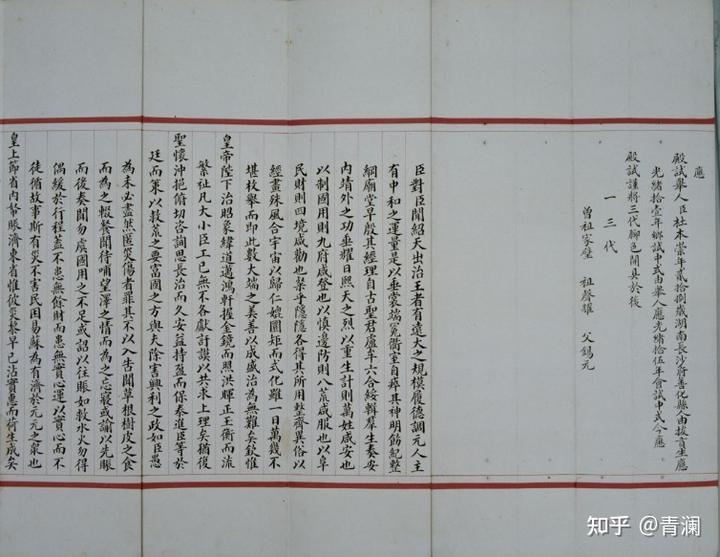 應
殿試舉人臣杜本崇年貳拾捌歲湖南長沙府善化縣人由拔貢生應
光緒拾壹年鄉試中式由舉人應光緒拾伍年會試中式今應
殿試謹將三代腳色開具於後
一三代
曾祖家墜 祖聲耀 父錫元
臣對臣聞紹天出治王者有遠大之規模履德調元人主
有中和之運量是以垂裳端冕衢室自瘁其神明飭紀整
綱廟堂早殷其經理自古聖君廑車六合綏輯羣生奏安
內靖外之功垂耀日照天之烈以重生計則萬姓咸安也
以制國用則九府咸登也以慎邊防則八荒咸服也以阜
民財則四境咸勸也槩乎隱隱各得其所用整齊異俗以
經畫殊風合宇宙以歸仁媲圜矩而式化雖一日萬幾不
堪枚舉而即此數大端之美善以成盛治為無難矣欽惟
皇帝陛下治昭象緯道邁鴻軒握金鏡而照洪暉正玉衡而流
繁祉凡大小臣工已無不各獻訏謨以共求上理矣猶復
聖懷沖挹俯切咨詢思長治而久安益持盈而保泰進臣等於
廷而策以救荒之要富國之方與夫除害興利之政如臣愚
為未必盡然匿災傷者罪其不以入告聞草根樹皮之食
而為之輟餐聞待哺望澤之情而為之忘寢或諭以先賑
而後奏聞勿虞國用之不足或詔以往賑如救水火勿得
偶緩於行程蓋不患無餘財而患無實心運以實心而不
徒循故事斯有災不害民困易蘇為有濟於元元之衆也
皇上節省內帑賑濟東省惟彼災黎早已沾實惠而荷生成矣
知乎 @青澜